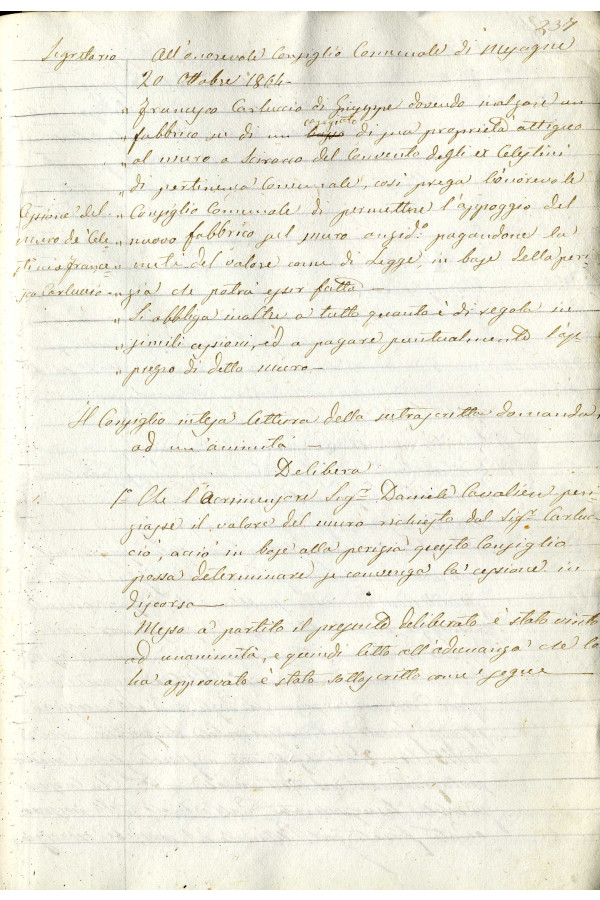 237
Segretario
All'onorevole Consiglio Comunale di Mesagne
20 Ottobre 1864
„ Francesco Carluccio di Giuseppe dovendo inalzare un
„ fabbrico su di un basso congiunto di sua proprietà attiguo
„ al muro a Scirocco del Convento degli ex Celestini
„ di pertinenza Comunale, così prega l'onorevole
„ Consiglio Comunale di permettere l'appoggio del
„ nuovo fabbrico sul muro anzid.o pagandone la
„ metà del valore come di Legge, in base della peri-
„ zia che potrà esser fatta —
„ Si obbliga inoltre a tutto quanto è di regola in
„ simili cessioni, ed a pagare puntualmente l'ap-
„ prezzo di detto muro —
Cessione del
muro de' Cele-
stini a France-
sco Carluccio
Il Consiglio intesa lettura della sutrascritta domanda,
ad unanimità —
Delibera
1o Che l'Acrimensore Sig.r Daniele Cavaliere peri-
ziasse il valore del muro richiesto dal Sig.r Carluc-
cio, acciò in base alla perizia questo Consiglio
possa determinare se convenga la cessione in
discorso —
Messo a partito il presente deliberato è stato vinto
ad unanimità, e quindi letto all'adunanza che lo
ha approvato è stato sottoscritto come segue —